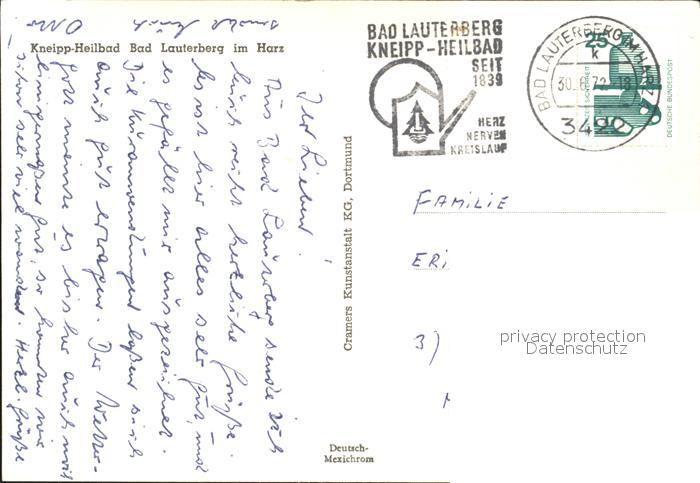 Kneipp-Heilbad Bad Lauterberg im Harz
Ihr Lieben!
Aus Bad Lauterberg sende ich
Euch recht herzliche Grüße.
Es ist hier alles sehr gut, und
es gefällt mir ausgezeichnet.
Die Kuranwendungen lassen sich
auch gut ertragen. Der Wetter-
gott meinte es bisher auch mit
gut, so konnten wir
schon sehr viel wandern. Herzl. Grüße
Oma
Cramers Kunstanstalt KG, Dortmund
Deutsch-
Mexichrom
BAD LAUTERBERG
KNEIPP-HEILBAD
SEIT
1839
HERZ
NERVEN
KREISLAUF
BAD LAUTERBERG IM HARZ
30. 72-18
3422
25
DEUTSCHE BUNDESPOST
FAMILIE
ERI
3)
privacy protection
Datenschutz